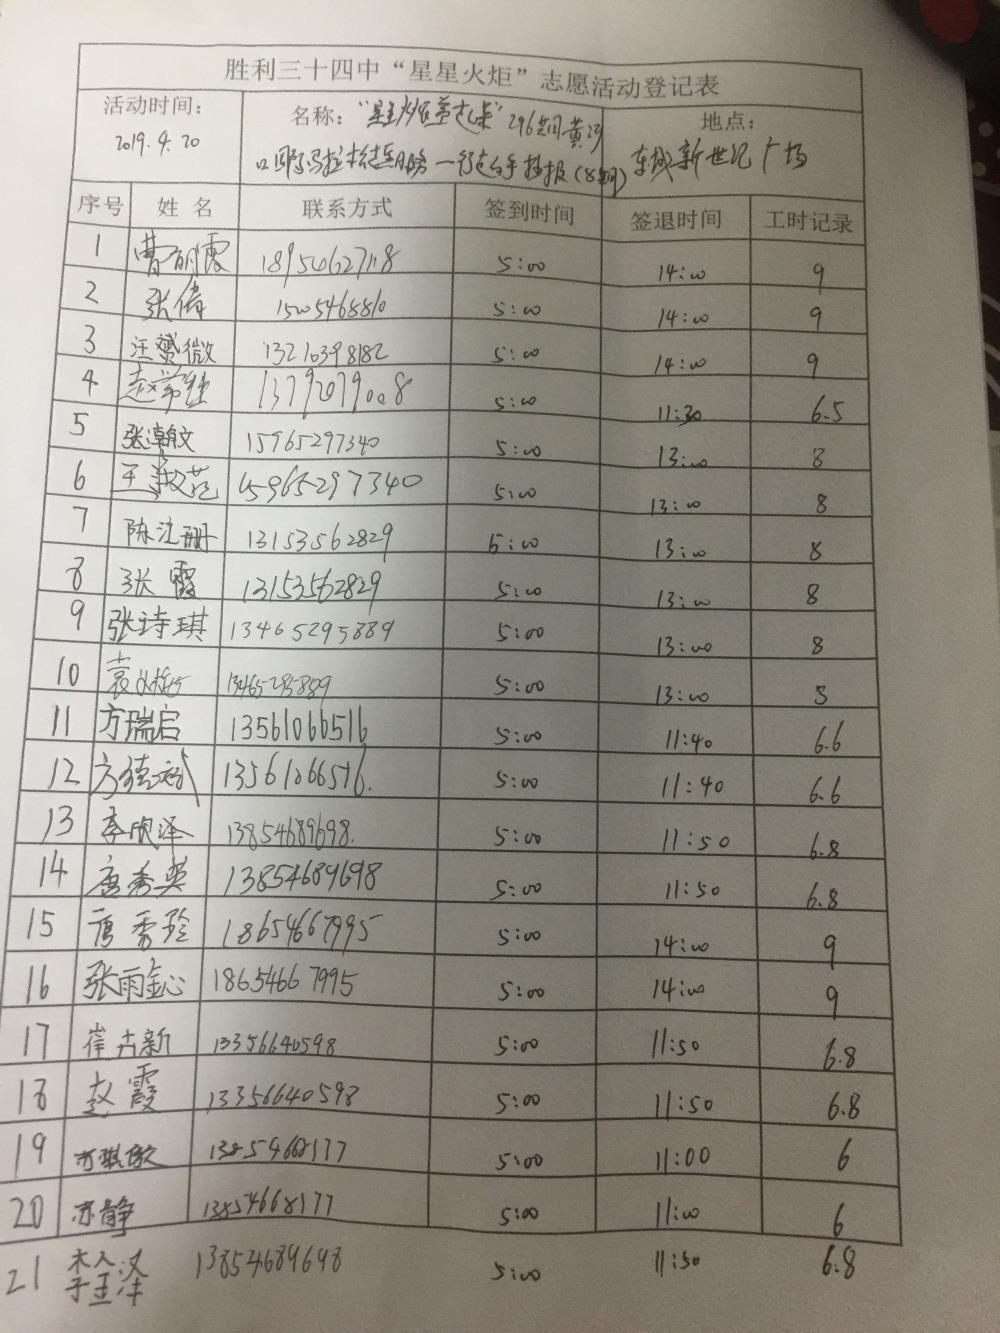 胜利三十四中“星星火炬”志愿活动登记表
活动时间： 名称：“星星火炬 296期黄河 地点：
2019.4.20 口 马拉松 服务 手抄报（8期） 东城新世纪广场
序号 姓名 联系方式 签到时间 签退时间 工时记录
1 曹明霞 18954627118 5:00 14:00 9
2 张倩 15005468810 5:00 14:00 9
3 汪赟微 13210398182 5:00 14:00 9
4 赵 13792079008 5:00 11:30 6.5
5 张瀚文 15965297340 5:00 13:00 8
6 王 范 15965297340 5:00 13:00 8
7 陈泣珊 13153562829 5:00 13:00 8
8 张霞 13153562829 5:00 13:00 8
9 张诗琪 13465295889 5:00 13:00 8
10 袁 13465295889 5:00 13:00 8
11 方瑞启 13561066516 5:00 11:40 6.6
12 方德斌 13561066516. 5:00 11:40 6.6
13 李欣泽 13854689698. 5:00 11:50 6.8
14 唐秀英 13854689698 5:00 11:50 6.8
15 唐秀玲 18654667995 5:00 14:00 9
16 张雨鑫心 18654667995 5:00 14:00 9
17 崔卉新 13356640598 5:00 11:50 6.8
18 赵霞 13356640598 5:00 11:50 6.8
19 琪微 13854668177 5:00 11:00 6
20 亦静 13854668177 5:00 11:00 6
21 李 泽 13854689698 5:00 11:50 6.8